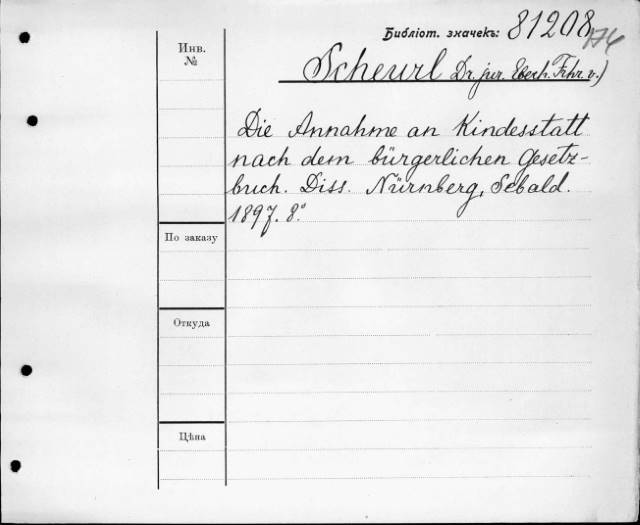 Библіот. значекъ: 81208
Инв.
№
Scheurl Dr. jur. Eberh. Frhr. v.)
Die Annahme an Kindesstatt
nach dem bürgerlichen Gesetz-
buch. Diss. Nürnberg, Sebald.
1897. 8°.
По заказу
Откуда
Цѣна